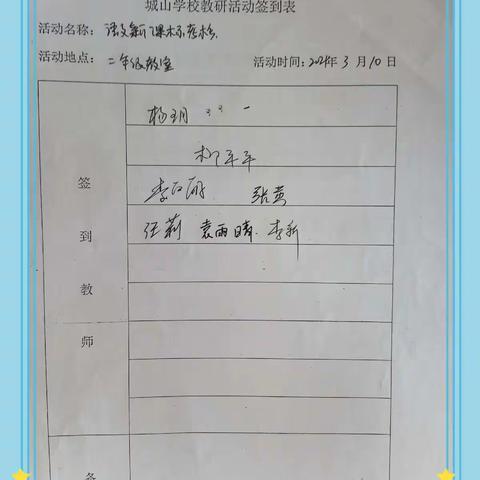 城山学校教研活动签到表
活动名称：语文新课标
活动地点：二年级教室 活动时间：2024年3月10日
杨玥
平平
李 张黄
汪莉 袁雨晴 李新
签到教师
备